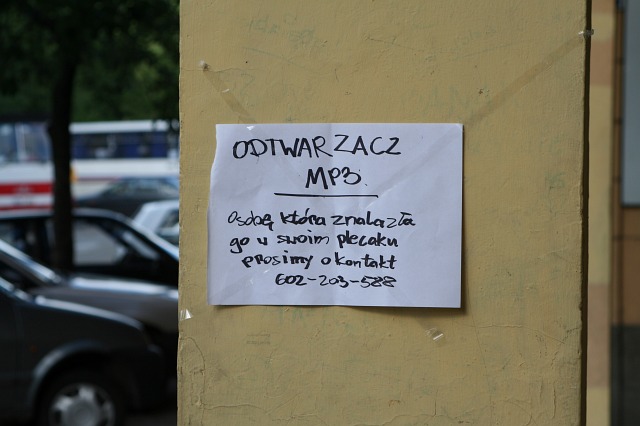 ODTWARZACZ
MP3.
Osobę która znalazła
go w swoim plecaku
prosimy o kontakt
602-203-588